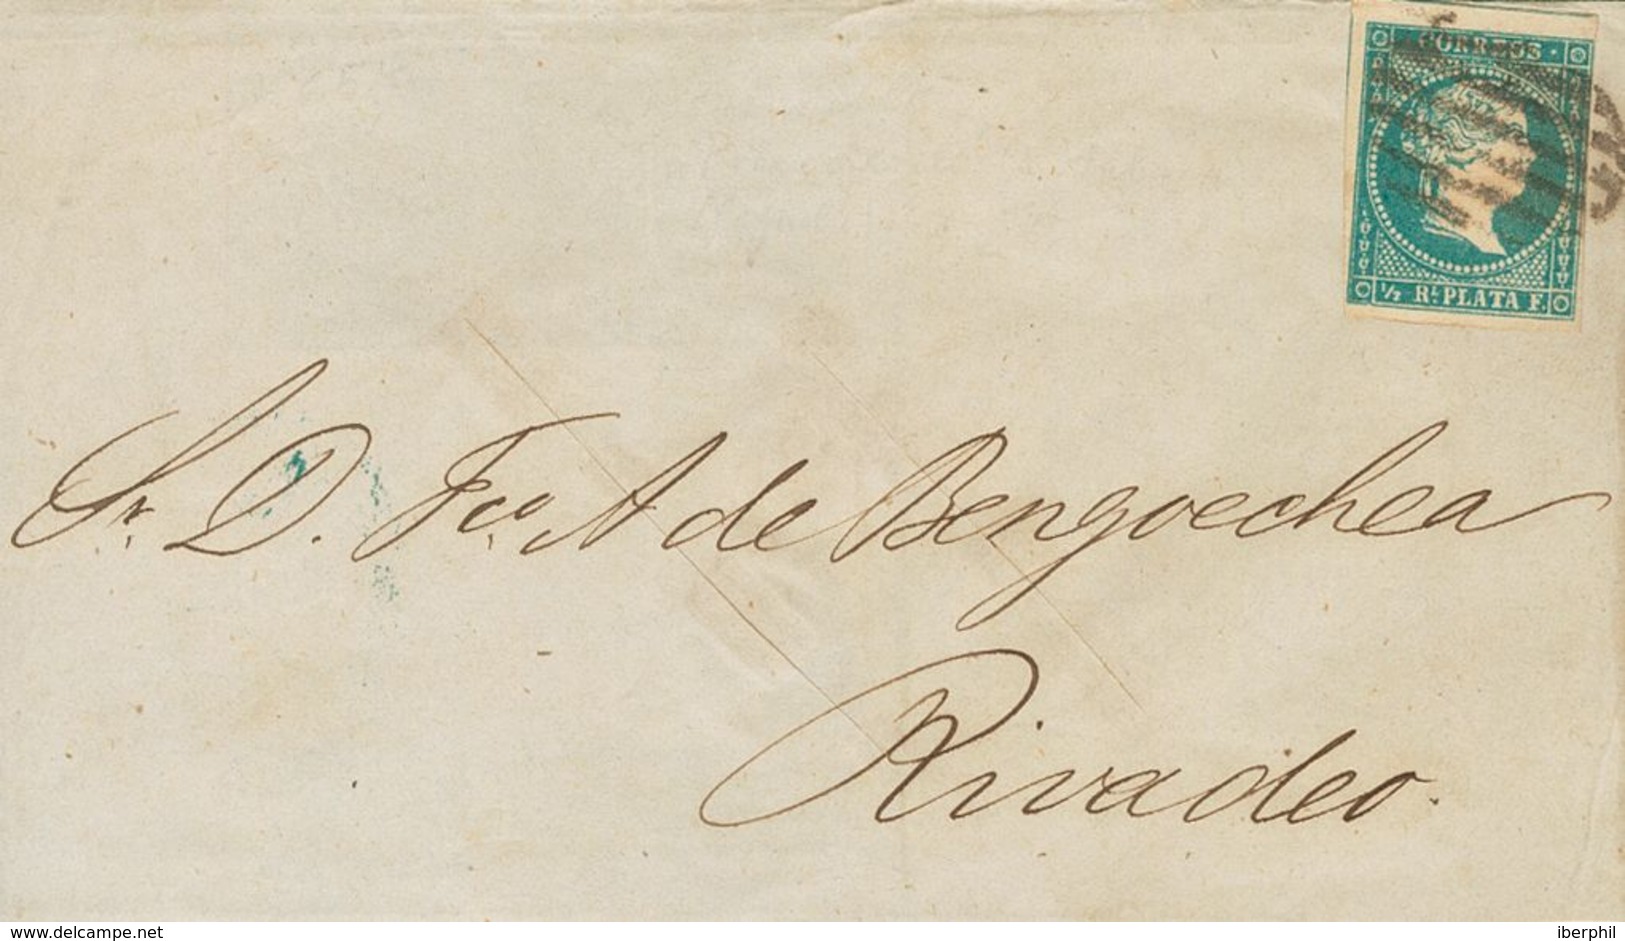 CORREOS
½ RL PLATA F.
Sr. D. Fco. A de Bengoechea
Rivadeo.
www.delcampe.net
iberphil